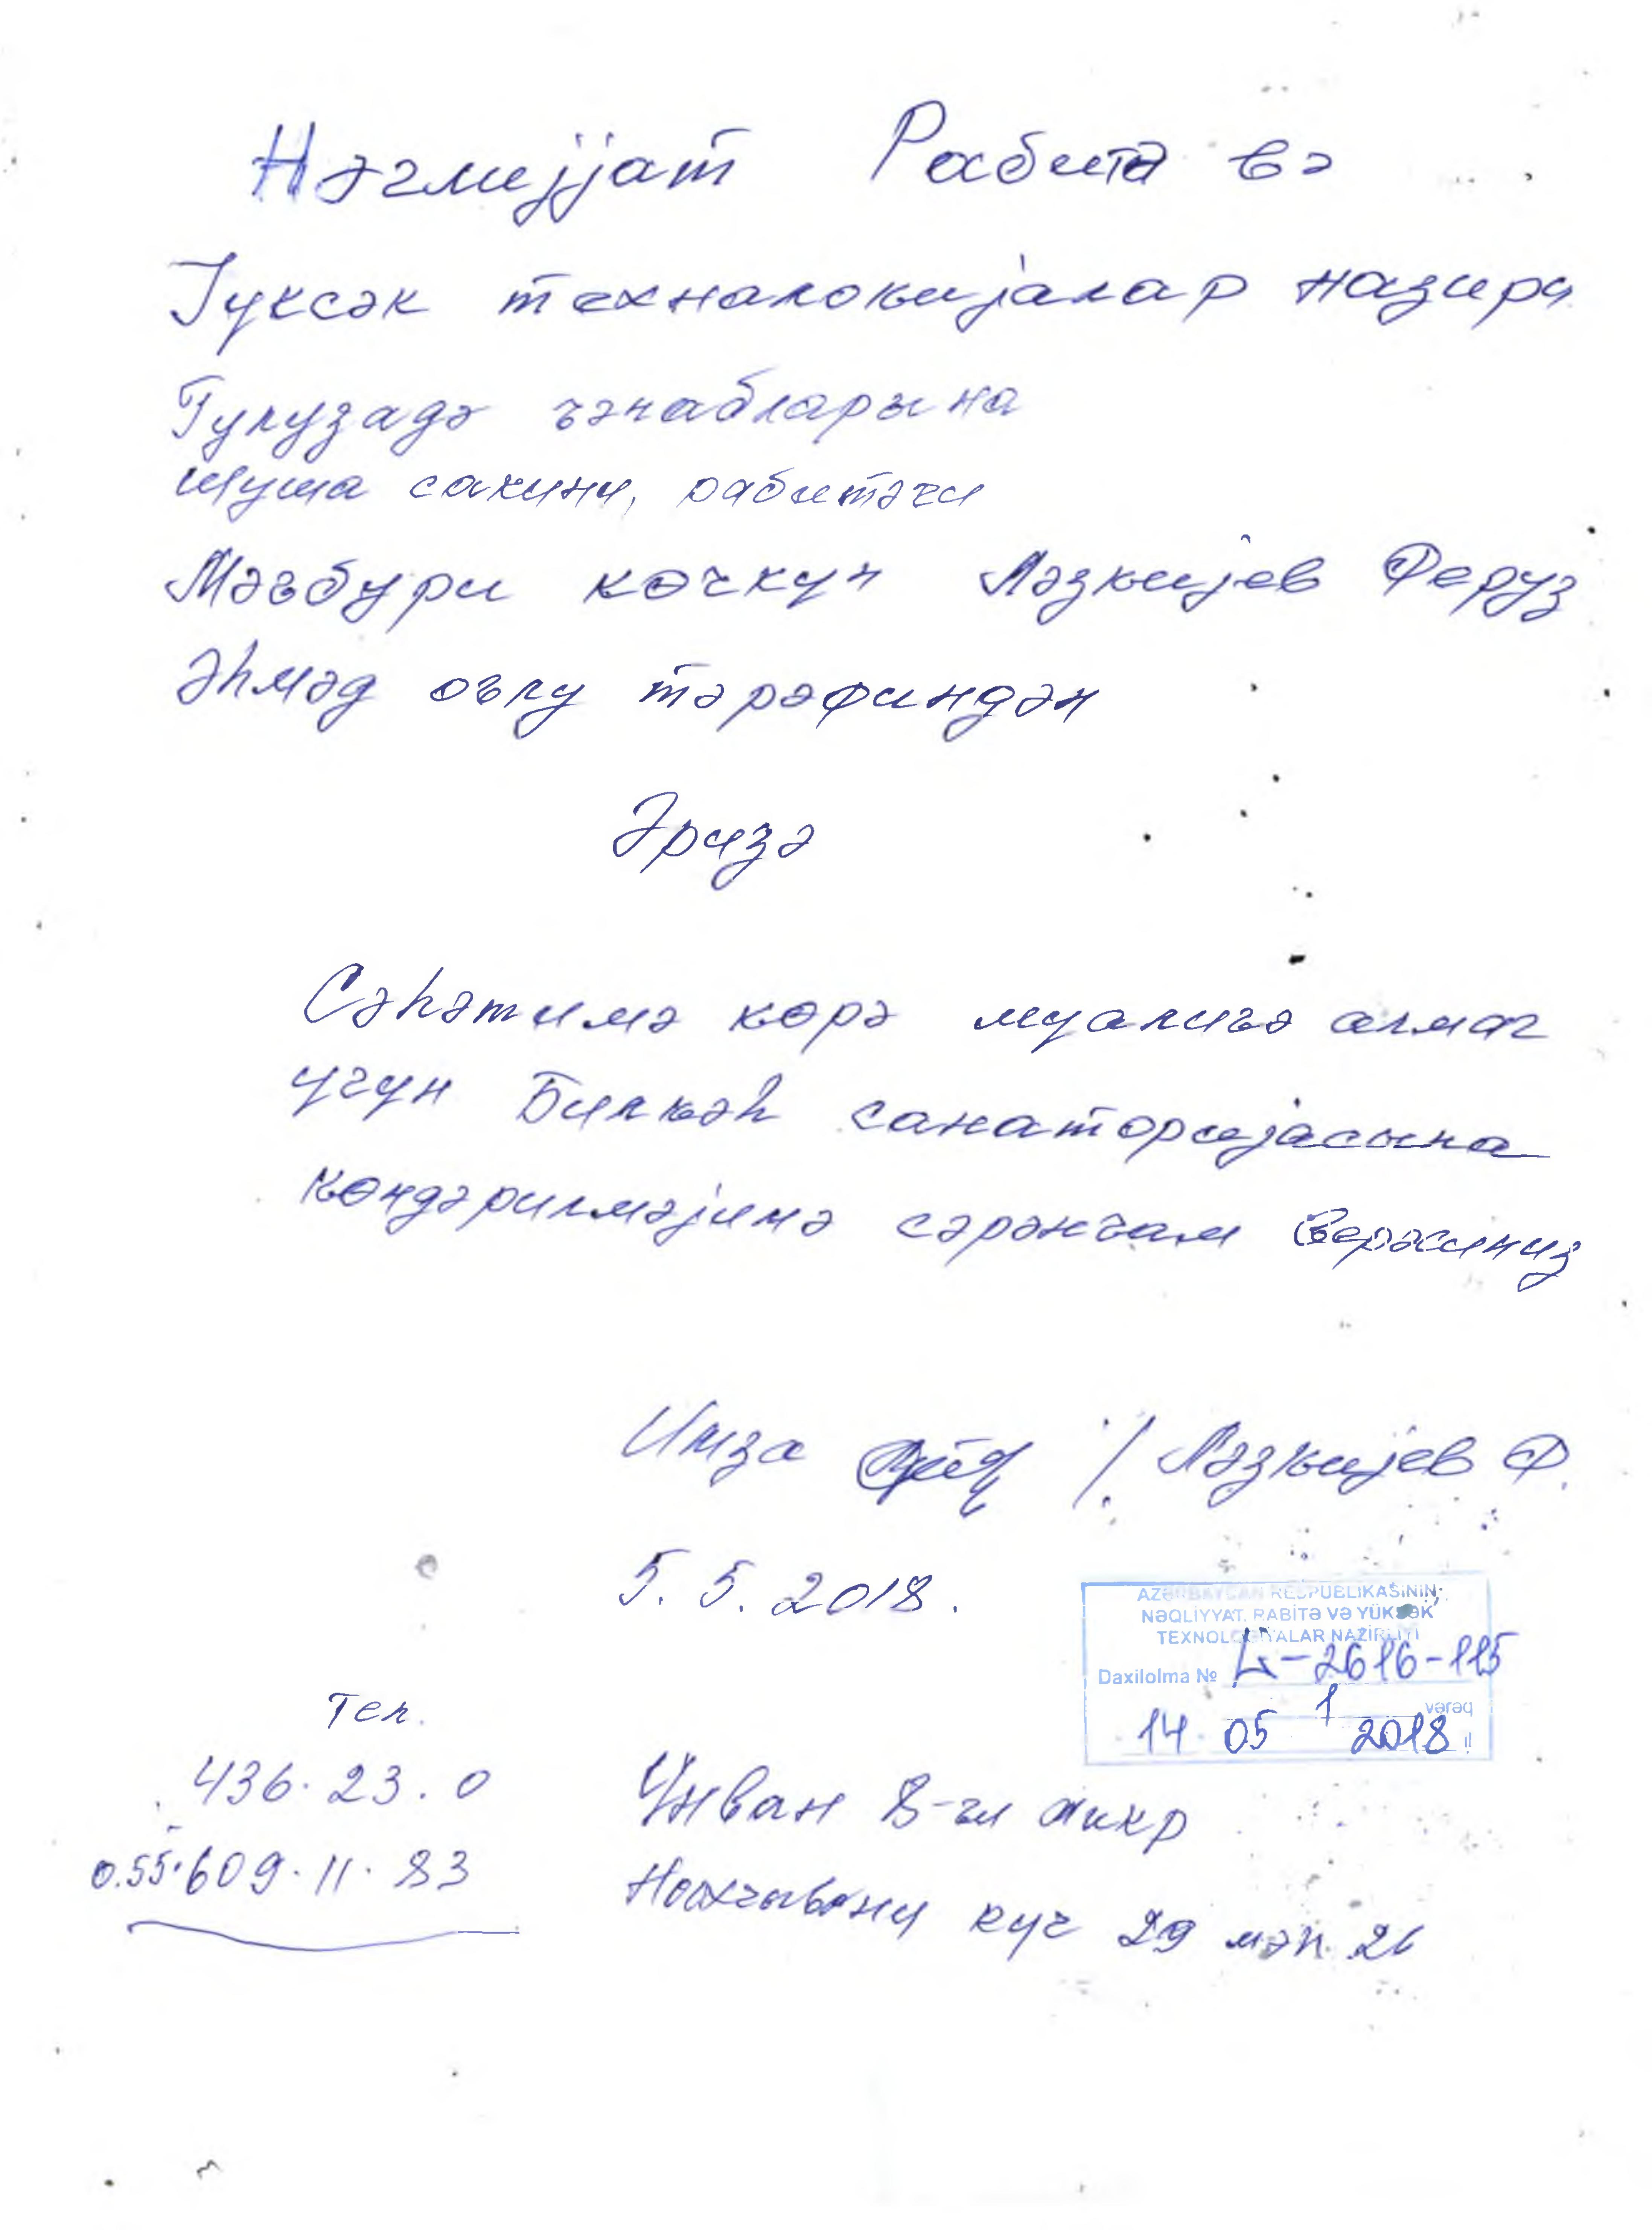 Нәгмијјат Рабитә вә
Јуксәк техналокијалар назири
Гулузадә ъәнабларына
Шуша сакини, рабитәчи
Мәъбури көчкун Ләзкијев Феруз
Әһмәд оълу тәрәфиндән
Әризә
Сәһәтимә көрә муалиъә алмаг
учун Билкәһ санаторијасына
көндәрилмәјимә сәрәнъам верәсиниз
Имза / Ләзкијев Ф.
5. 5. 2018.
AZƏRBAYCAN RESPUBLİKASININ
NƏQLİYYAT, RABİTƏ VƏ YÜKSƏK
TEXNOLOGİYALAR NAZİRLİYİ
Daxilolma № L-2616-115
1 vərəq
14 05 2018
Тел.
436. 23. 0
0.55.609. 11. 83
Унван 8-ъи микр
Нахчывани куч 29 мән. 26